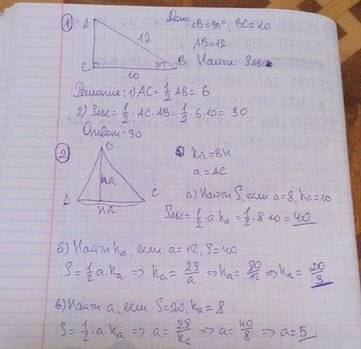 1
Дано: ∠B=30°, BC=10
AB=12
Найти: S_ABC
A
12
C
10
30°
B
Решение: 1) AC = 1/2 AB = 6
2) S_ABC = 1/2 · AC · AB = 1/2 · 6 · 10 = 30
Ответ: 30
2
B
ha
A
H
a
C
ha = BH
a = AC
а) Найти S, если a=8, ha=10
S_ABC = 1/2 · a · ha = 1/2 · 8 · 10 = 40
б) Найти ha, если a=12, S=40
S = 1/2 · a · ha ⇒ ha = 2S/a ⇒ ha = 80/12 ⇒ ha = 20/3
в) Найти a, если S=20, ha=8
S = 1/2 · a · ha ⇒ a = 2S/ha ⇒ a = 40/8 ⇒ a = 5